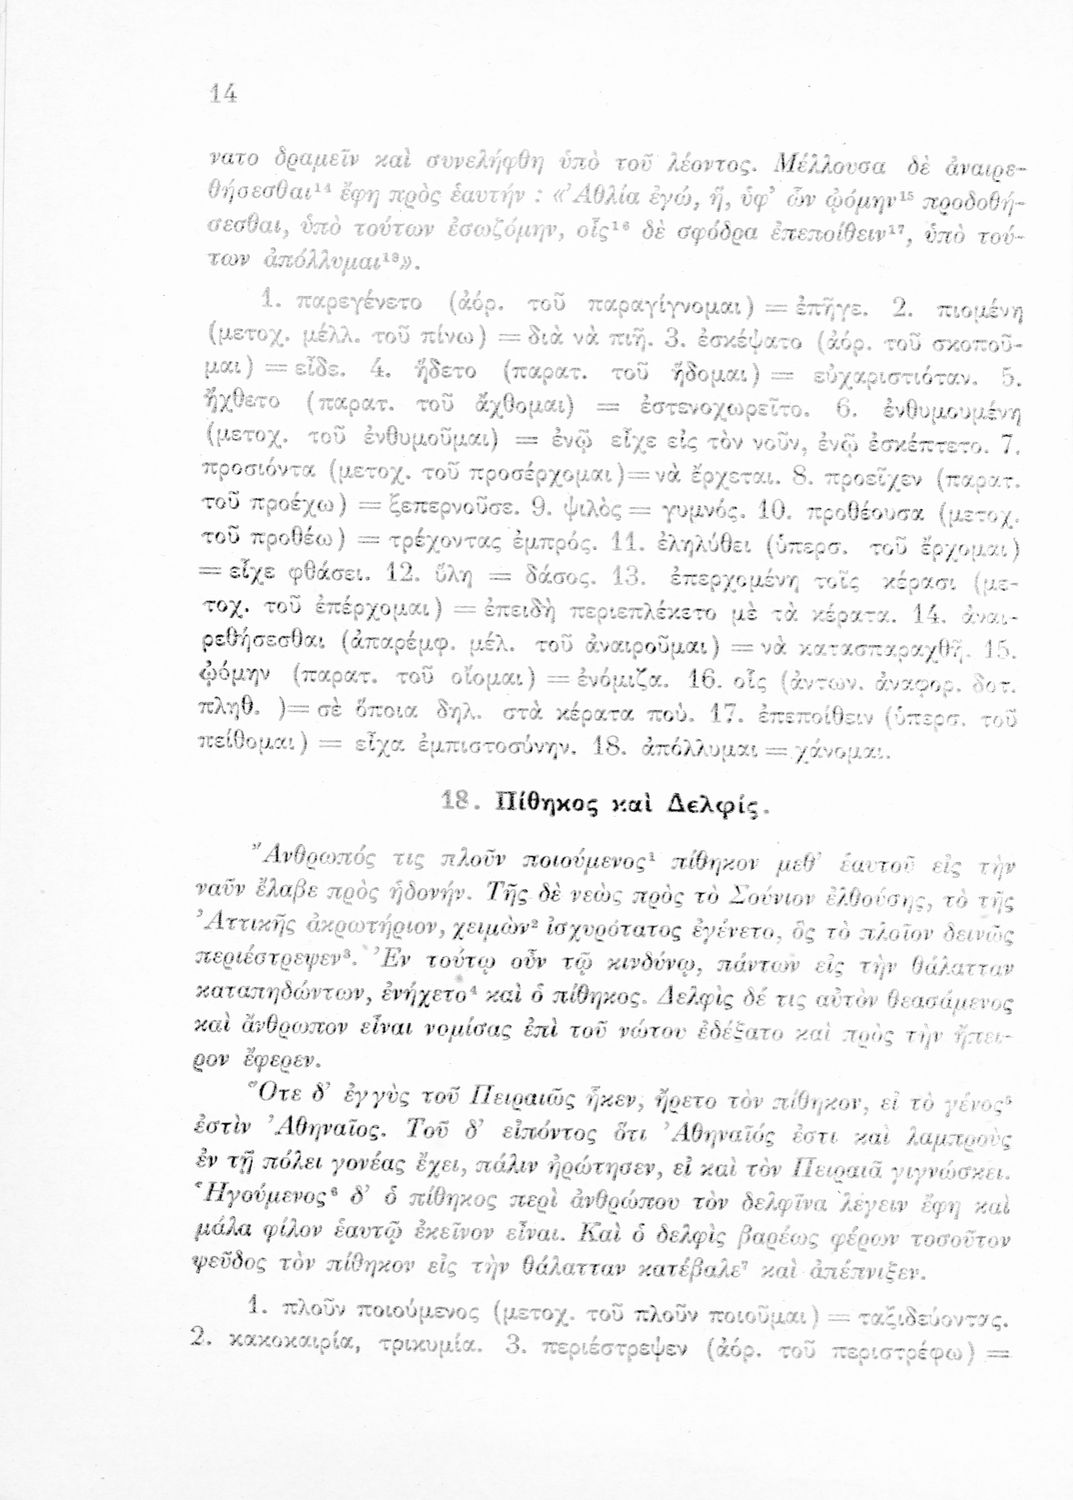 14
νατο δραμεῖν καὶ συνελήφθη ὑπὸ τοῦ λέοντος. Μέλλουσα δὲ ἀναιρε-
θήσεσθαι¹⁴ ἔφη πρὸς ἑαυτήν : «Ἀθλία ἐγώ, ἥ, ὑφ’ ὧν ᾠόμην¹⁵ προδοθή-
σεσθαι, ὑπὸ τούτων ἐσωζόμην, οἷς¹⁶ δὲ σφόδρα ἐπεποίθειν¹⁷, ὑπὸ τού-
των ἀπόλλυμαι¹⁸».
1. παρεγένετο (ἀόρ. τοῦ παραγίγνομαι) = ἐπῆγε. 2. πιομένη
(μετοχ. μέλλ. τοῦ πίνω) = διὰ νὰ πιῇ. 3. ἐσκέψατο (ἀόρ. τοῦ σκοποῦ-
μαι) = εἶδε. 4. ἥδετο (παρατ. τοῦ ἥδομαι) = εὐχαριστιόταν. 5.
ἤχθετο (παρατ. τοῦ ἄχθομαι) = ἐστενοχωρεῖτο. 6. ἐνθυμουμένη
(μετοχ. τοῦ ἐνθυμοῦμαι) = ἐνῷ εἶχε εἰς τὸν νοῦν, ἐνῷ ἐσκέπτετο. 7.
προσιόντα (μετοχ. τοῦ προσέρχομαι) = νὰ ἔρχεται. 8. προεῖχεν (παρατ.
τοῦ προέχω) = ξεπερνοῦσε. 9. ψιλὸς = γυμνός. 10. προθέουσα (μετοχ.
τοῦ προθέω) = τρέχοντας ἐμπρός. 11. ἐληλύθει (ὑπερσ. τοῦ ἔρχομαι)
= εἶχε φθάσει. 12. ὕλη = δάσος. 13. ἐπερχομένη τοῖς κέρασι (με-
τοχ. τοῦ ἐπέρχομαι) = ἐπειδὴ περιεπλέκετο μὲ τὰ κέρατα. 14. ἀναι-
ρεθήσεσθαι (ἀπαρέμφ. μέλ. τοῦ ἀναιροῦμαι) = νὰ κατασπαραχθῇ. 15.
ᾠόμην (παρατ. τοῦ οἴομαι) = ἐνόμιζα. 16. οἷς (ἀντων. ἀναφορ. δοτ.
πληθ. )= σὲ ὅποια δηλ. στὰ κέρατα ποὺ. 17. ἐπεποίθειν (ὑπερσ. τοῦ
πείθομαι) = εἶχα ἐμπιστοσύνην. 18. ἀπόλλυμαι = χάνομαι.
18. Πίθηκος καὶ Δελφίς.
Ἄνθρωπός τις πλοῦν ποιούμενος¹ πίθηκον μεθ’ ἑαυτοῦ εἰς τὴν
ναῦν ἔλαβε πρὸς ἡδονήν. Τῆς δὲ νεὼς πρὸς τὸ Σούνιον ἐλθούσης, τὸ τῆς
Ἀττικῆς ἀκρωτήριον, χειμὼν² ἰσχυρότατος ἐγένετο, ὃς τὸ πλοῖον δεινῶς
περιέστρεψεν³. Ἐν τούτῳ οὖν τῷ κινδύνῳ, πάντων εἰς τὴν θάλατταν
καταπηδώντων, ἐνήχετο⁴ καὶ ὁ πίθηκος. Δελφὶς δέ τις αὐτὸν θεασάμενος
καὶ ἄνθρωπον εἶναι νομίσας ἐπὶ τοῦ νώτου ἐδέξατο καὶ πρὸς τὴν ἤπει-
ρον ἔφερεν.
Ὅτε δ’ ἐγγὺς τοῦ Πειραιῶς ἧκεν, ἤρετο τὸν πίθηκον, εἰ τὸ γένος⁵
ἐστὶν Ἀθηναῖος. Τοῦ δ’ εἰπόντος ὅτι Ἀθηναῖός ἐστι καὶ λαμπροὺς
ἐν τῇ πόλει γονέας ἔχει, πάλιν ἠρώτησεν, εἰ καὶ τὸν Πειραιᾶ γιγνώσκει.
Ἡγούμενος⁶ δ’ ὁ πίθηκος περὶ ἀνθρώπου τὸν δελφῖνα λέγειν ἔφη καὶ
μάλα φίλον ἑαυτῷ ἐκεῖνον εἶναι. Καὶ ὁ δελφὶς βαρέως φέρων τοσοῦτον
ψεῦδος τὸν πίθηκον εἰς τὴν θάλατταν κατέβαλε⁷ καὶ ἀπέπνιξεν.
1. πλοῦν ποιούμενος (μετοχ. τοῦ πλοῦν ποιοῦμαι) = ταξιδεύοντας.
2. κακοκαιρία, τρικυμία. 3. περιέστρεψεν (ἀόρ. τοῦ περιστρέφω) =